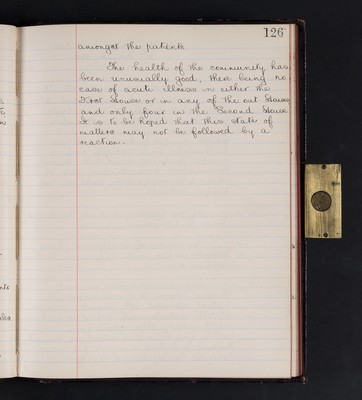 126
amongst the patients
The health of the community has
been unusually good, there being no
case of acute illness in either the
First House or in any of the out Houses
and only four in the Second House
It is to be hoped that this state of
matters may not be followed by a
reaction.